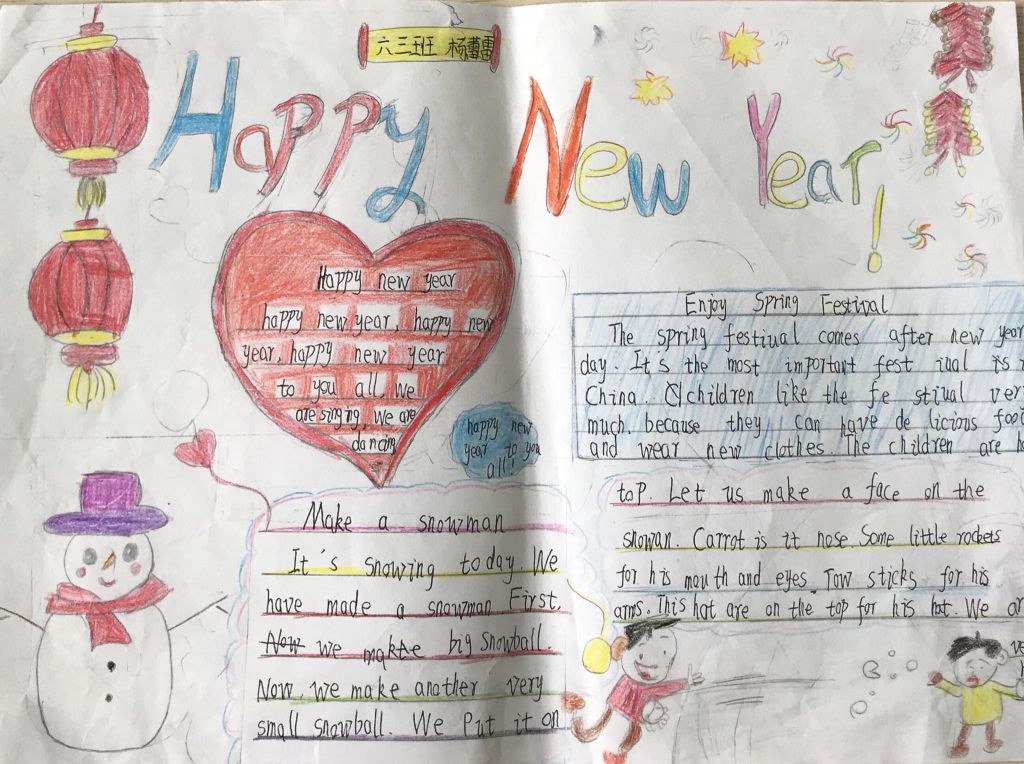 六三班 杨
Happy New Year!
Happy new year
happy new year, happy new
year, happy new year
to you all, we
are singing, We are
dancing
happy new
year to you
all!
Enjoy Spring Festival
The spring festiual comes after new year
day. It's the most important fest iual is
China. children like the fe stiual ver
much, because they can have de licious food
and wear new clothes. The children are
Make a snowman
It's snowing today. We
have made a snowman First,
Now we make big snowball.
Now, we make another very
small snowball. We Put it on
top. Let us make a face on the
snowan. Carrot is it nose. Some little rockets
for his mouth and eyes. Tow sticks for his
arms. This hat are on the top for his hat. We ar